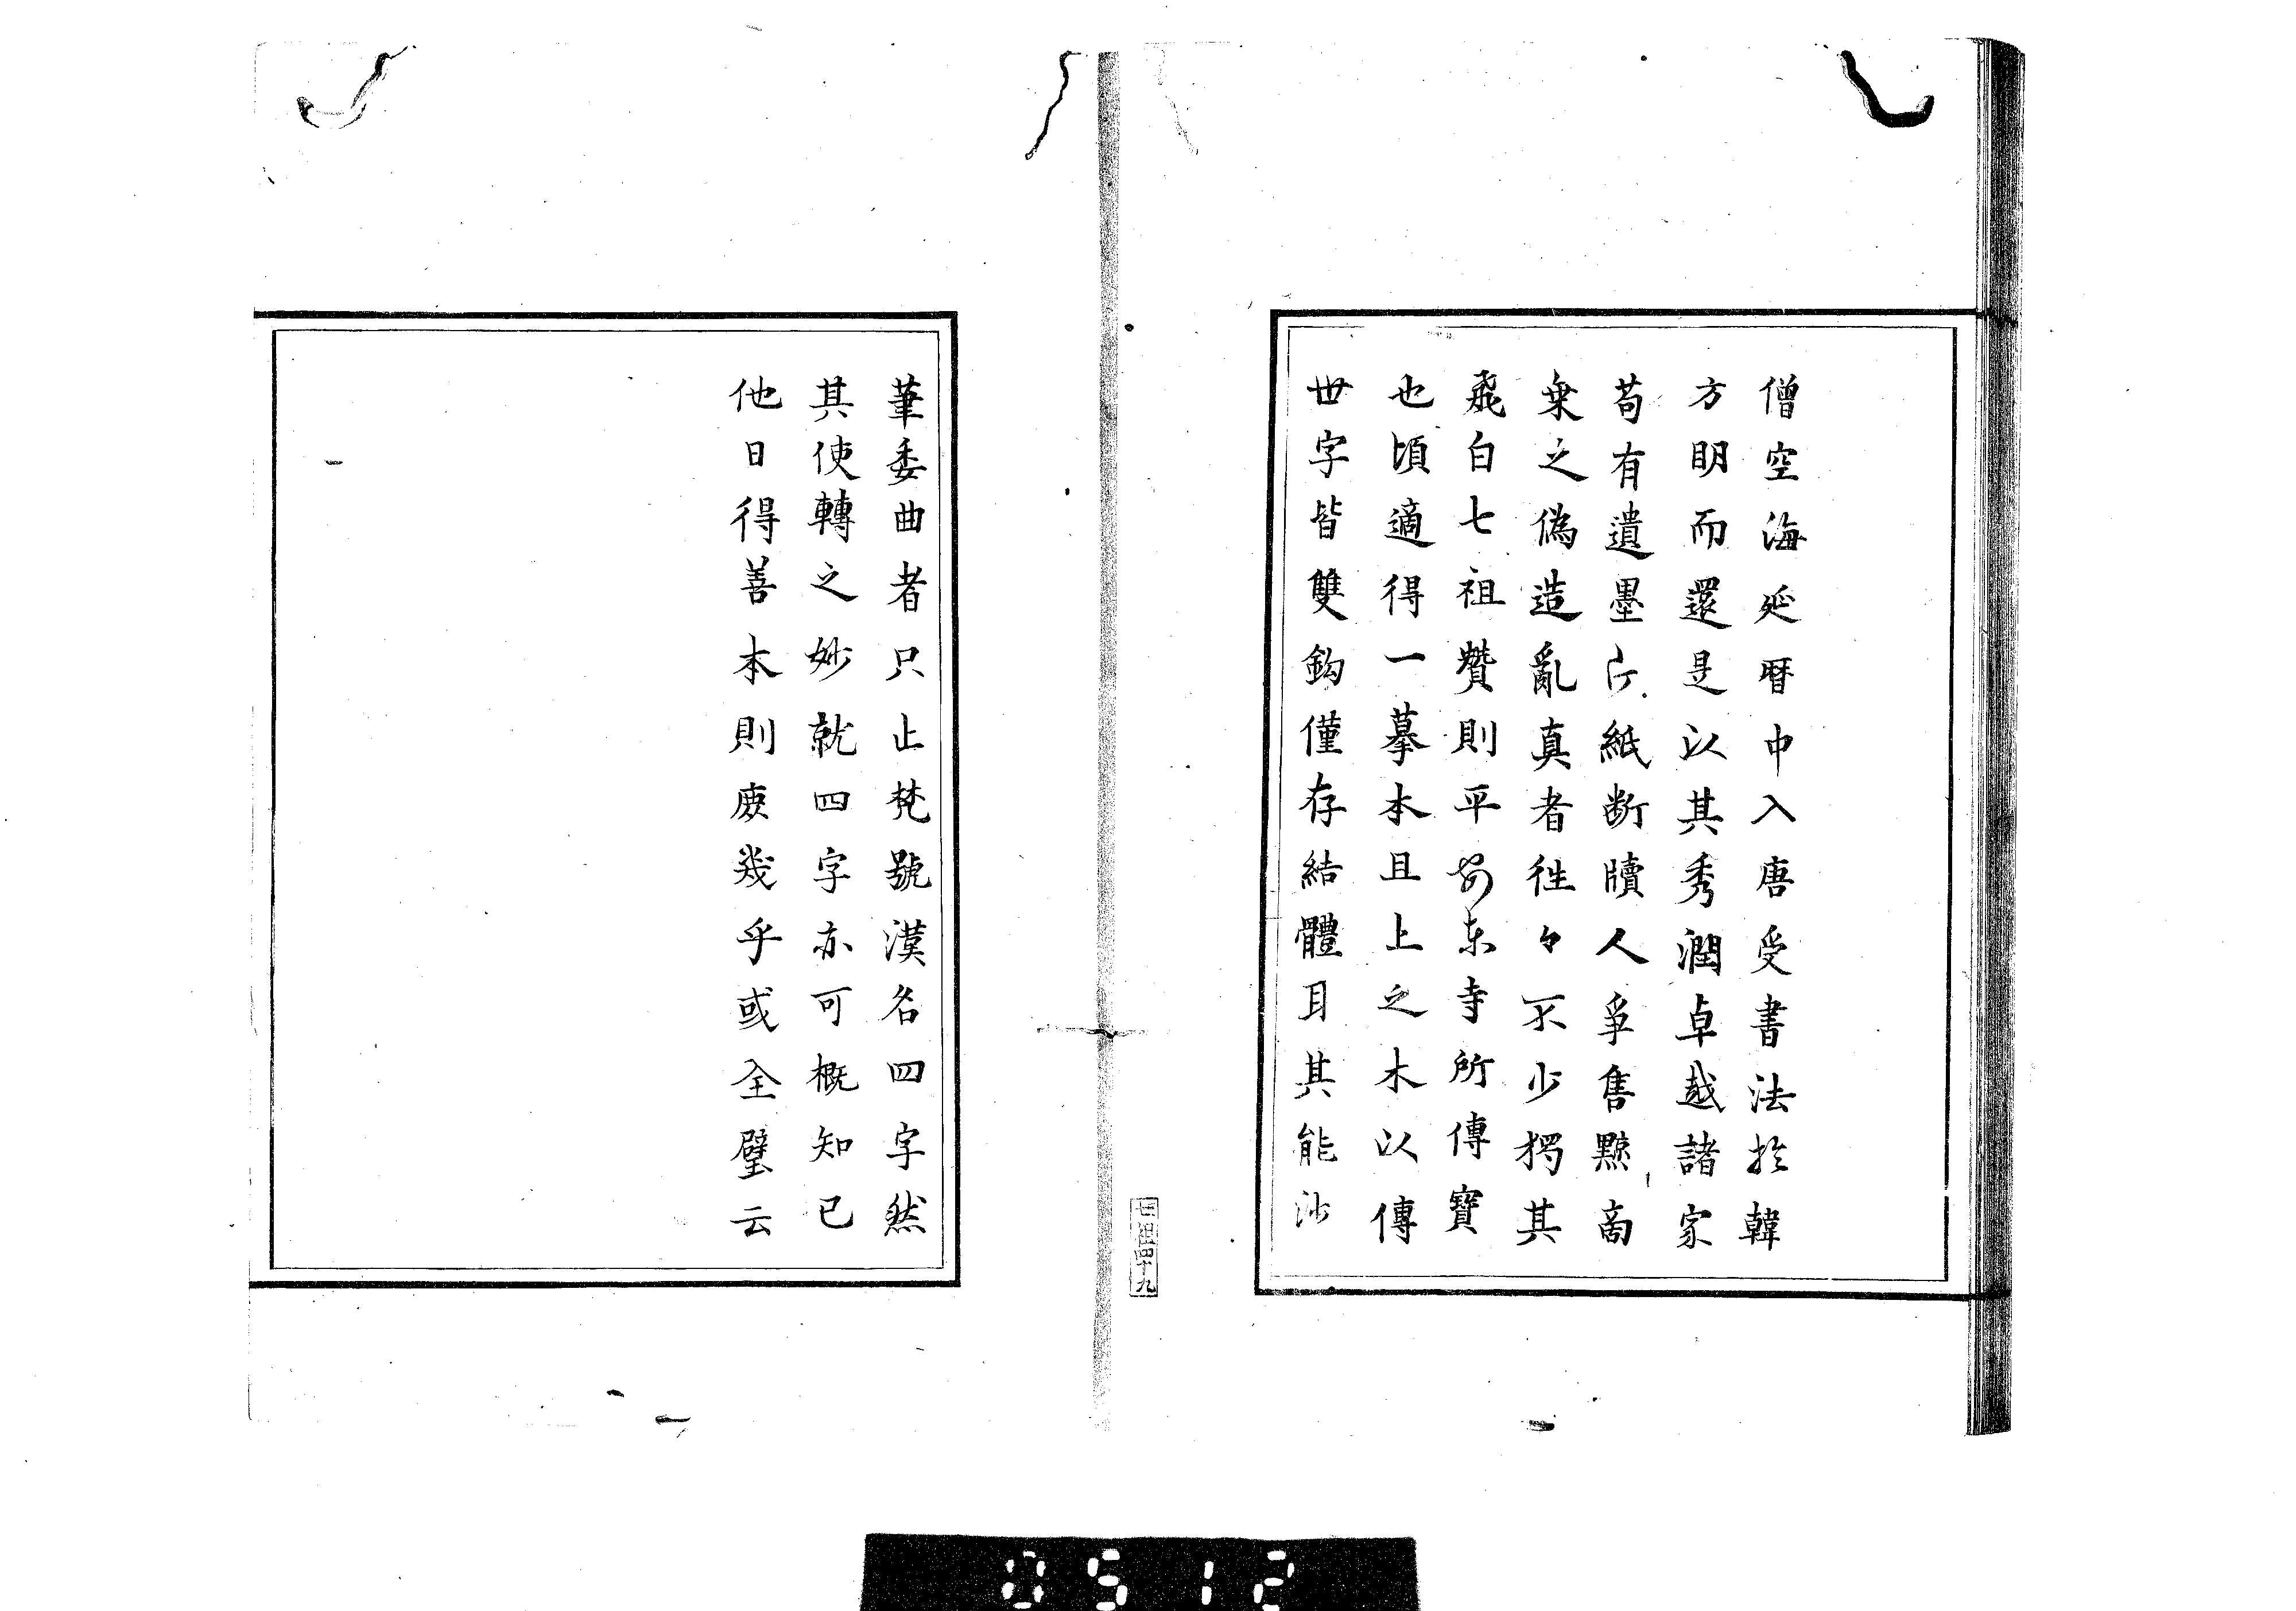 僧空海延暦中入唐受書法於韓
方明而還是以其秀潤卓越諸家
苟有遺墨片紙断牘人爭售黠商
乗之偽造亂真者往々不少獨其
飛白七祖贊則平安東寺所傳寶
也頃適得一摹本且上之木以傳
世字皆雙鈎僅存結體耳其能沙
筆委曲者只止梵號漢名四字然
其使轉之妙就四字亦可概知已
他日得善本則庶幾乎或全璧云
四十九
0512